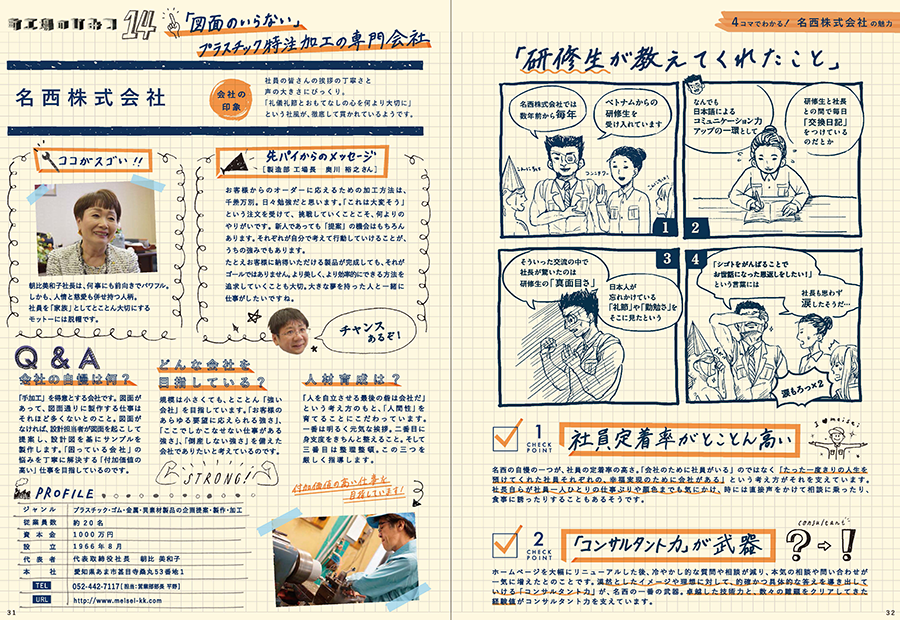 町工場のリネコ 14
「図面のいらない」
プラスチック特注加工の専門会社
名西株式会社
会社の
印象
社員の皆さんの挨拶の丁寧さと
声の大きさにびっくり。
「礼儀礼節とおもてなしの心を何より大切に」
という社風が、徹底して貫かれているようです。
ココがスゴい!!
朝比美和子社長は、何事にも前向きでパワフル。
しかも、人情と慈愛も併せ持つ人柄。
社員を「家族」としてとことん大切にする
モットーには脱帽です。
先パイからのメッセージ
[製造部 工場長 奥川 裕之さん]
お客様からのオーダーに応えるための加工方法は、
千差万別。日々勉強だと思います。「これは大変そう」
という注文を受けて、挑戦していくことこそ、何よりの
やりがいです。新人であっても「提案」の機会はもちろん
あります。それぞれが自分で考えて行動していけることが、
うちの強みでもあります。
たとえお客様に納得いただける製品が完成しても、それが
ゴールではありません。より美しく、より効率的にできる方法を
追求していくことも大切。大きな夢を持った人と一緒に
仕事がしたいですね。
チャンス
あるぞ!
Q&A
会社の自慢は何?
「手加工」を得意とする会社です。図面が
あって、図面通りに製作する仕事は
それほど多くないとのこと。図面が
なければ、設計担当者が図面を起こして
提案し、設計図を基にサンプルを
製作します。「困っている会社」の
悩みを丁寧に解決する「付加価値の
高い」仕事を目指しているのです。
どんな会社を
目指している?
規模は小さくても、とことん「強い
会社」を目指しています。「お客様の
あらゆる要望に応えられる強さ」、
「ここでしかこなせない仕事がある
強さ」、「倒産しない強さ」を備えた
会社でありたいと考えているのです。
STRONG!
人材育成は?
「人を自立させる最後の砦は会社だ」
という考え方のもと、「人間性」を
育てることにこだわっています。
一番は明るく元気な挨拶。二番目に
身支度をきちんと整えること。そして
三番目は整理整頓。この三つを
厳しく指導します。
付加価値の高い仕事を
目指しています!
PROFILE
ジャンル プラスチック・ゴム・金属・異素材製品の企画提案・製作・加工
従業員数 約20名
資本金 1000万円
設立 1966年8月
代表者 代表取締役社長 朝比 美和子
本社 愛知県あま市甚目寺桑丸53番地1
TEL 052-442-7117[担当:営業部部長 平野]
URL http://www.meisei-kk.com
31
4コマでわかる! 名西株式会社の魅力
「研修生が教えてくれたこと」
名西株式会社では
数年前から毎年
ベトナムからの
研修生を
受け入れています
1
なんでも
日本語による
コミュニケーション力
アップの一環として
研修生と社長
との間で毎日
「交換日記」
をつけている
のだとか
2
そういった交流の中で
社長が驚いたのは
研修生の「真面目さ」
日本人が
忘れかけている
「礼節」や「勤勉さ」を
そこに見たという
3
「シゴトをがんばることで
お世話になった恩返しをしたい!」
という言葉には
社長も思わず
涙したそうだ…
涙もろっ×2
4
1
CHECK
POINT
社員定着率がとことん高い
I ♥ meisei
名西の自慢の一つが、社員の定着率の高さ。「会社のために社員がいる」のではなく「たった一度きりの人生を
預けてくれた社員それぞれの、幸福実現のために会社がある」という考え方がそれを支えています。
社長自らが社員一人ひとりの仕事ぶりや顔色までも気にかけ、時には直接声をかけて相談に乗ったり、
食事に誘ったりすることもあるそうです。
2
CHECK
POINT
「コンサルタント力」が武器
consultant
?⇨!
ホームページを大幅にリニューアルした後、冷やかし的な質問や相談が減り、本気の相談や問い合わせが
一気に増えたとのことです。漠然としたイメージや理想に対して、的確かつ具体的な答えを導き出して
いける「コンサルタント力」が、名西の一番の武器。卓越した技術力と、数々の難題をクリアしてきた
経験値がコンサルタント力を支えています。
32